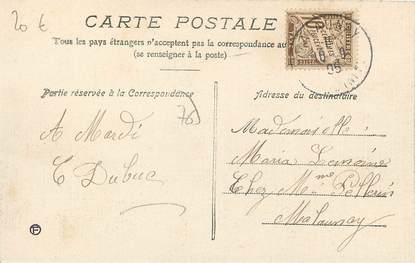 20 €
CARTE POSTALE
Tous les pays étrangers n'acceptent pas la correspondance au
(se renseigner à la poste)
Partie réservée à la Correspondance
Adresse du destinataire
76
A Mardi
E Dubuc
Mademoiselle
Maria Lemoine
Chez Mme Pellerin
Malaunay